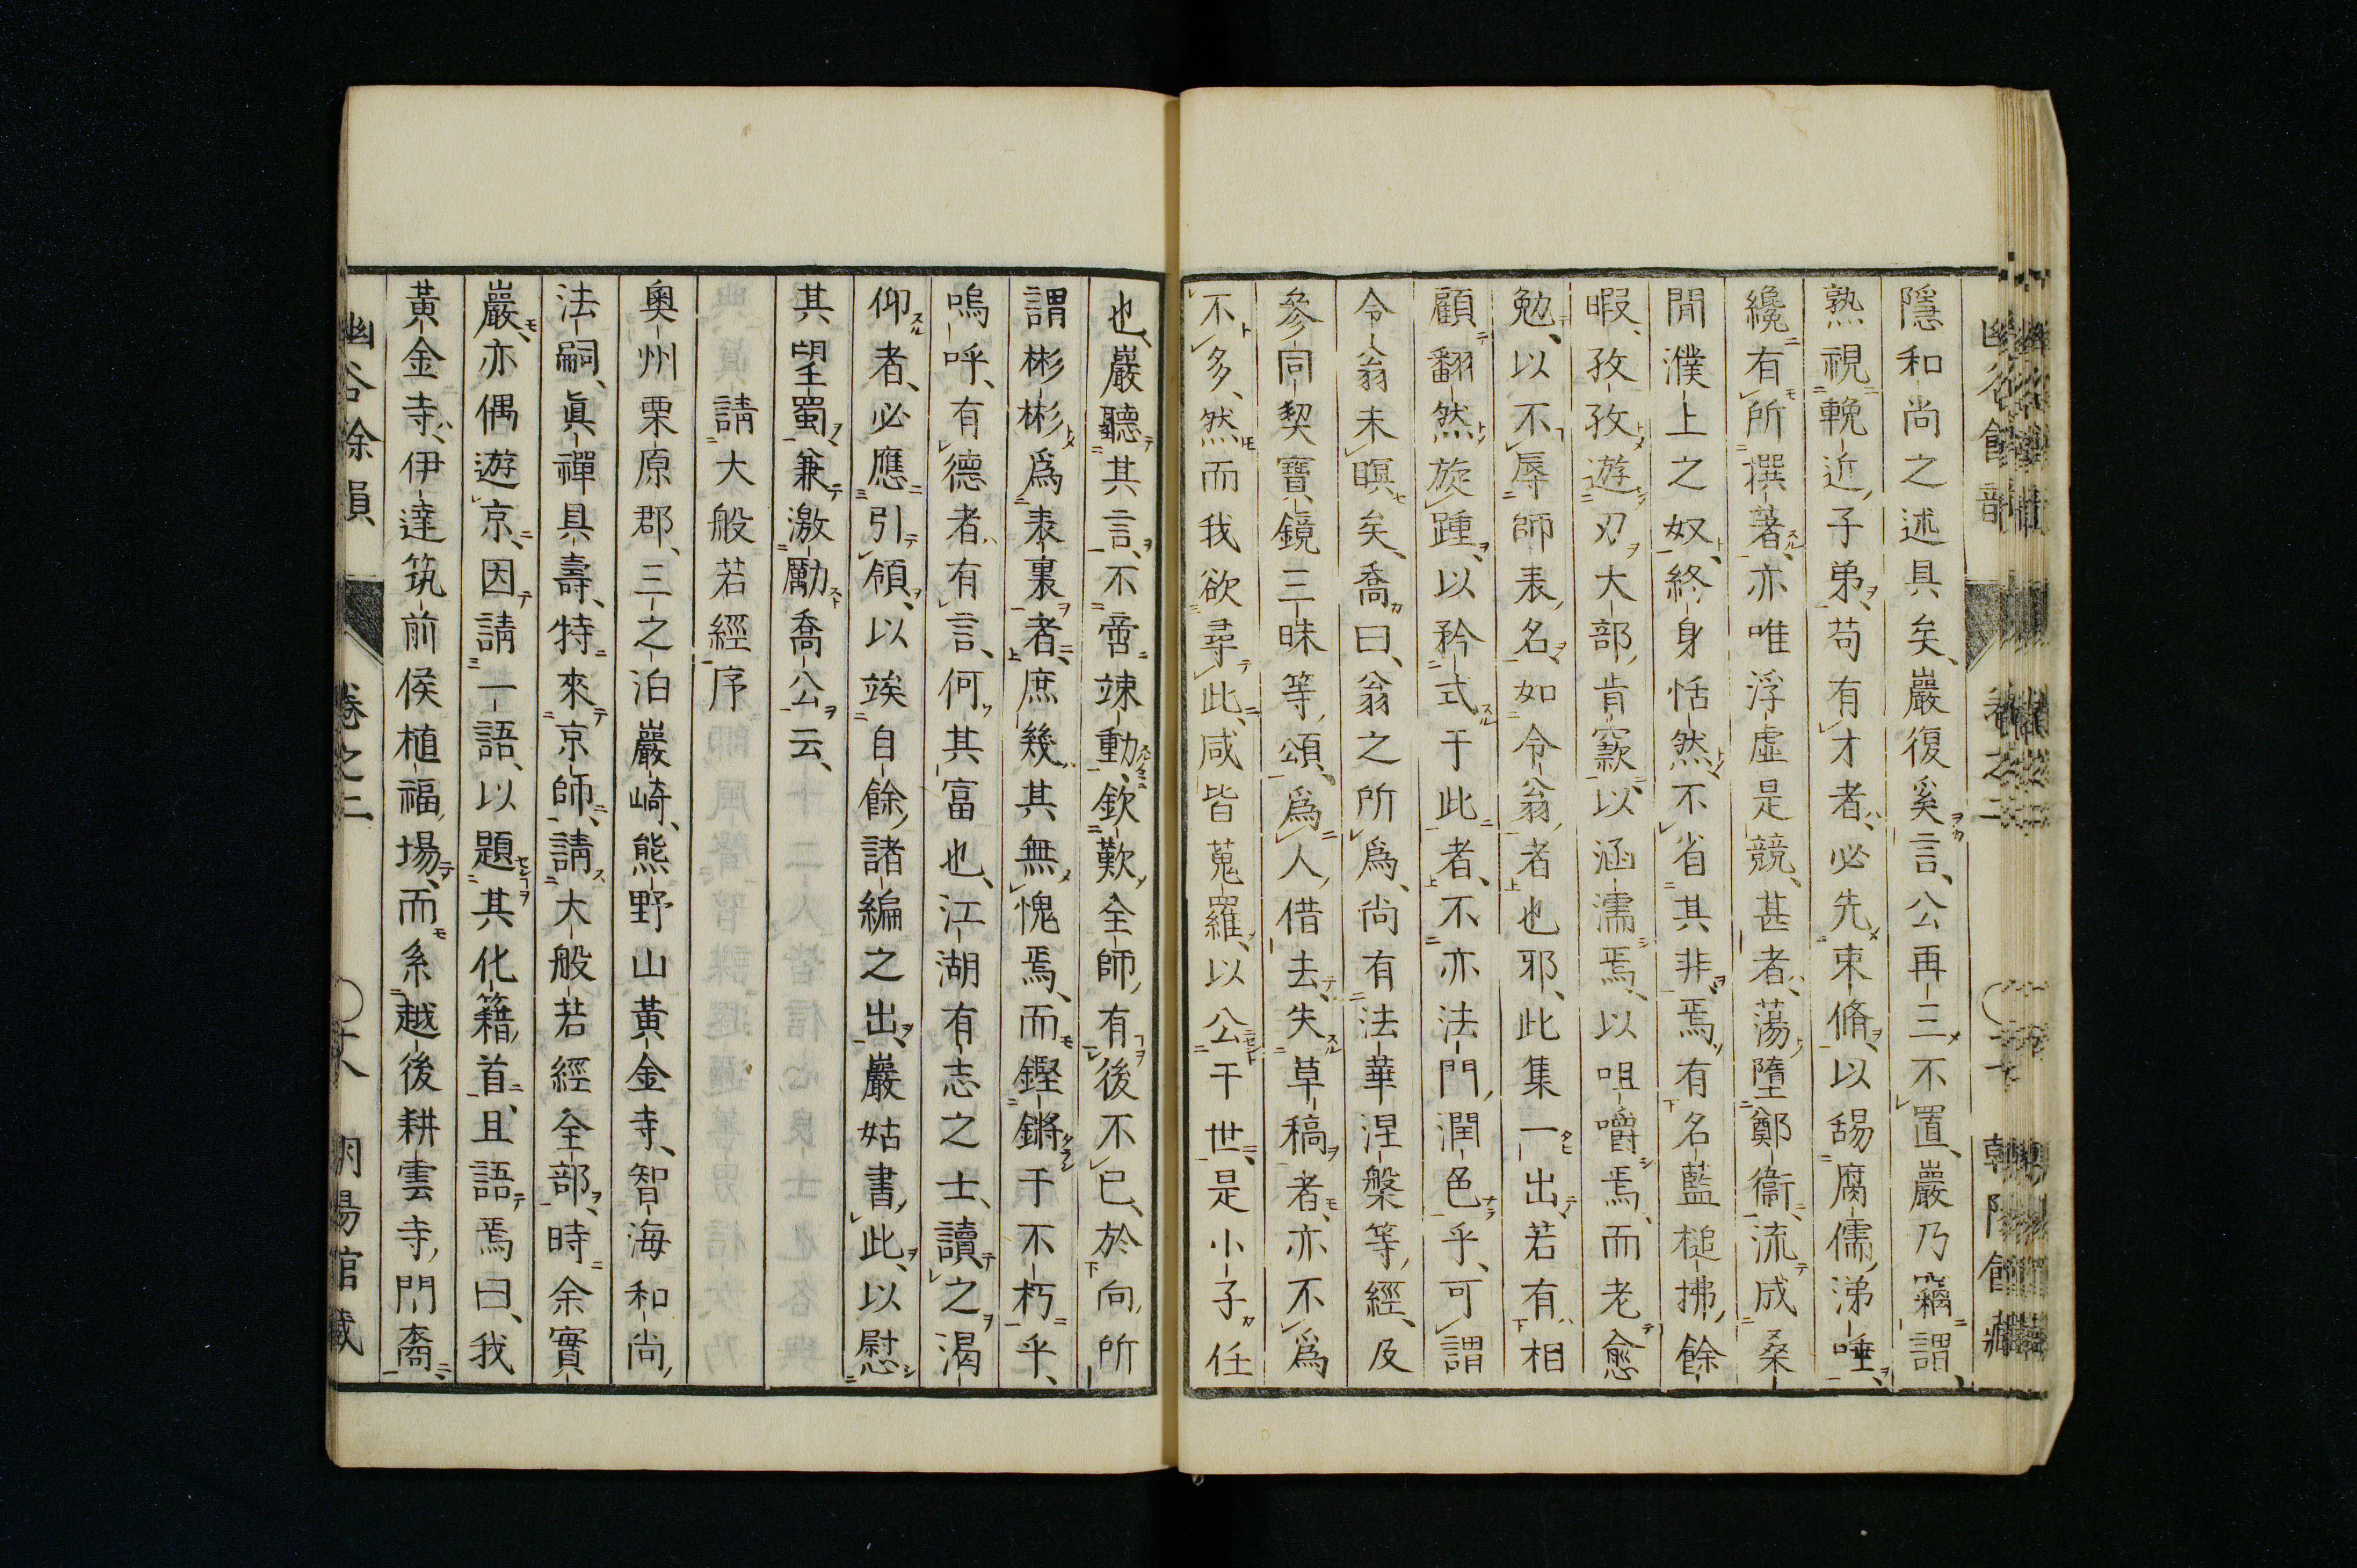 隱和尚之述具矣、巖復奚言、公再三不置、巖乃竊謂、
熟視輓近子弟、苟有才者、必先束脩、以舓腐儒涕唾、
纔有所撰著、亦唯浮虛是競、甚者、蕩墮鄭衞、流成桑
間濮上之奴、終身恬然不省其非焉、有名藍槌拂、餘
暇、孜孜遊刃大部、肯窾以涵濡焉、以咀嚼焉、而老愈
勉、以不辱師表、名如令翁者也邪、此集一出、若有相
顧翻然旋踵、以矜式于此者、不亦法門潤色乎、可謂
令翁未瞑矣、喬曰、翁之所爲、尚有法華涅槃等經、及
參同契寶鏡三昧等頌、爲人借去、失草稿者、亦不爲
不多、然而我欲尋此、咸皆蒐羅、以公干世、是小子任
也、巖聽其言、不啻竦動、欽歎全師、有後不已、於向所
謂彬彬爲表裏者、庶幾其無愧焉、而鏗鏘于不朽乎、
嗚呼、有德者、有言、何其富也、江湖有志之士、讀之渴
仰者、必應引領、以竢自餘諸編之出、巖姑書此、以慰
其望蜀、兼激勵喬公云、
請大般若經序
奧州栗原郡、三之泊巖崎、熊野山黃金寺、智海和尚、
法嗣、眞禪具壽、特來京師、請大般若經全部、時余實
巖亦偶遊京、因請一語、以題其化籍首、且語焉曰、我
黃金寺、伊達筑前侯植福場、而系越後耕雲寺、門裔
幽谷餘韻 卷之二 朝陽館藏